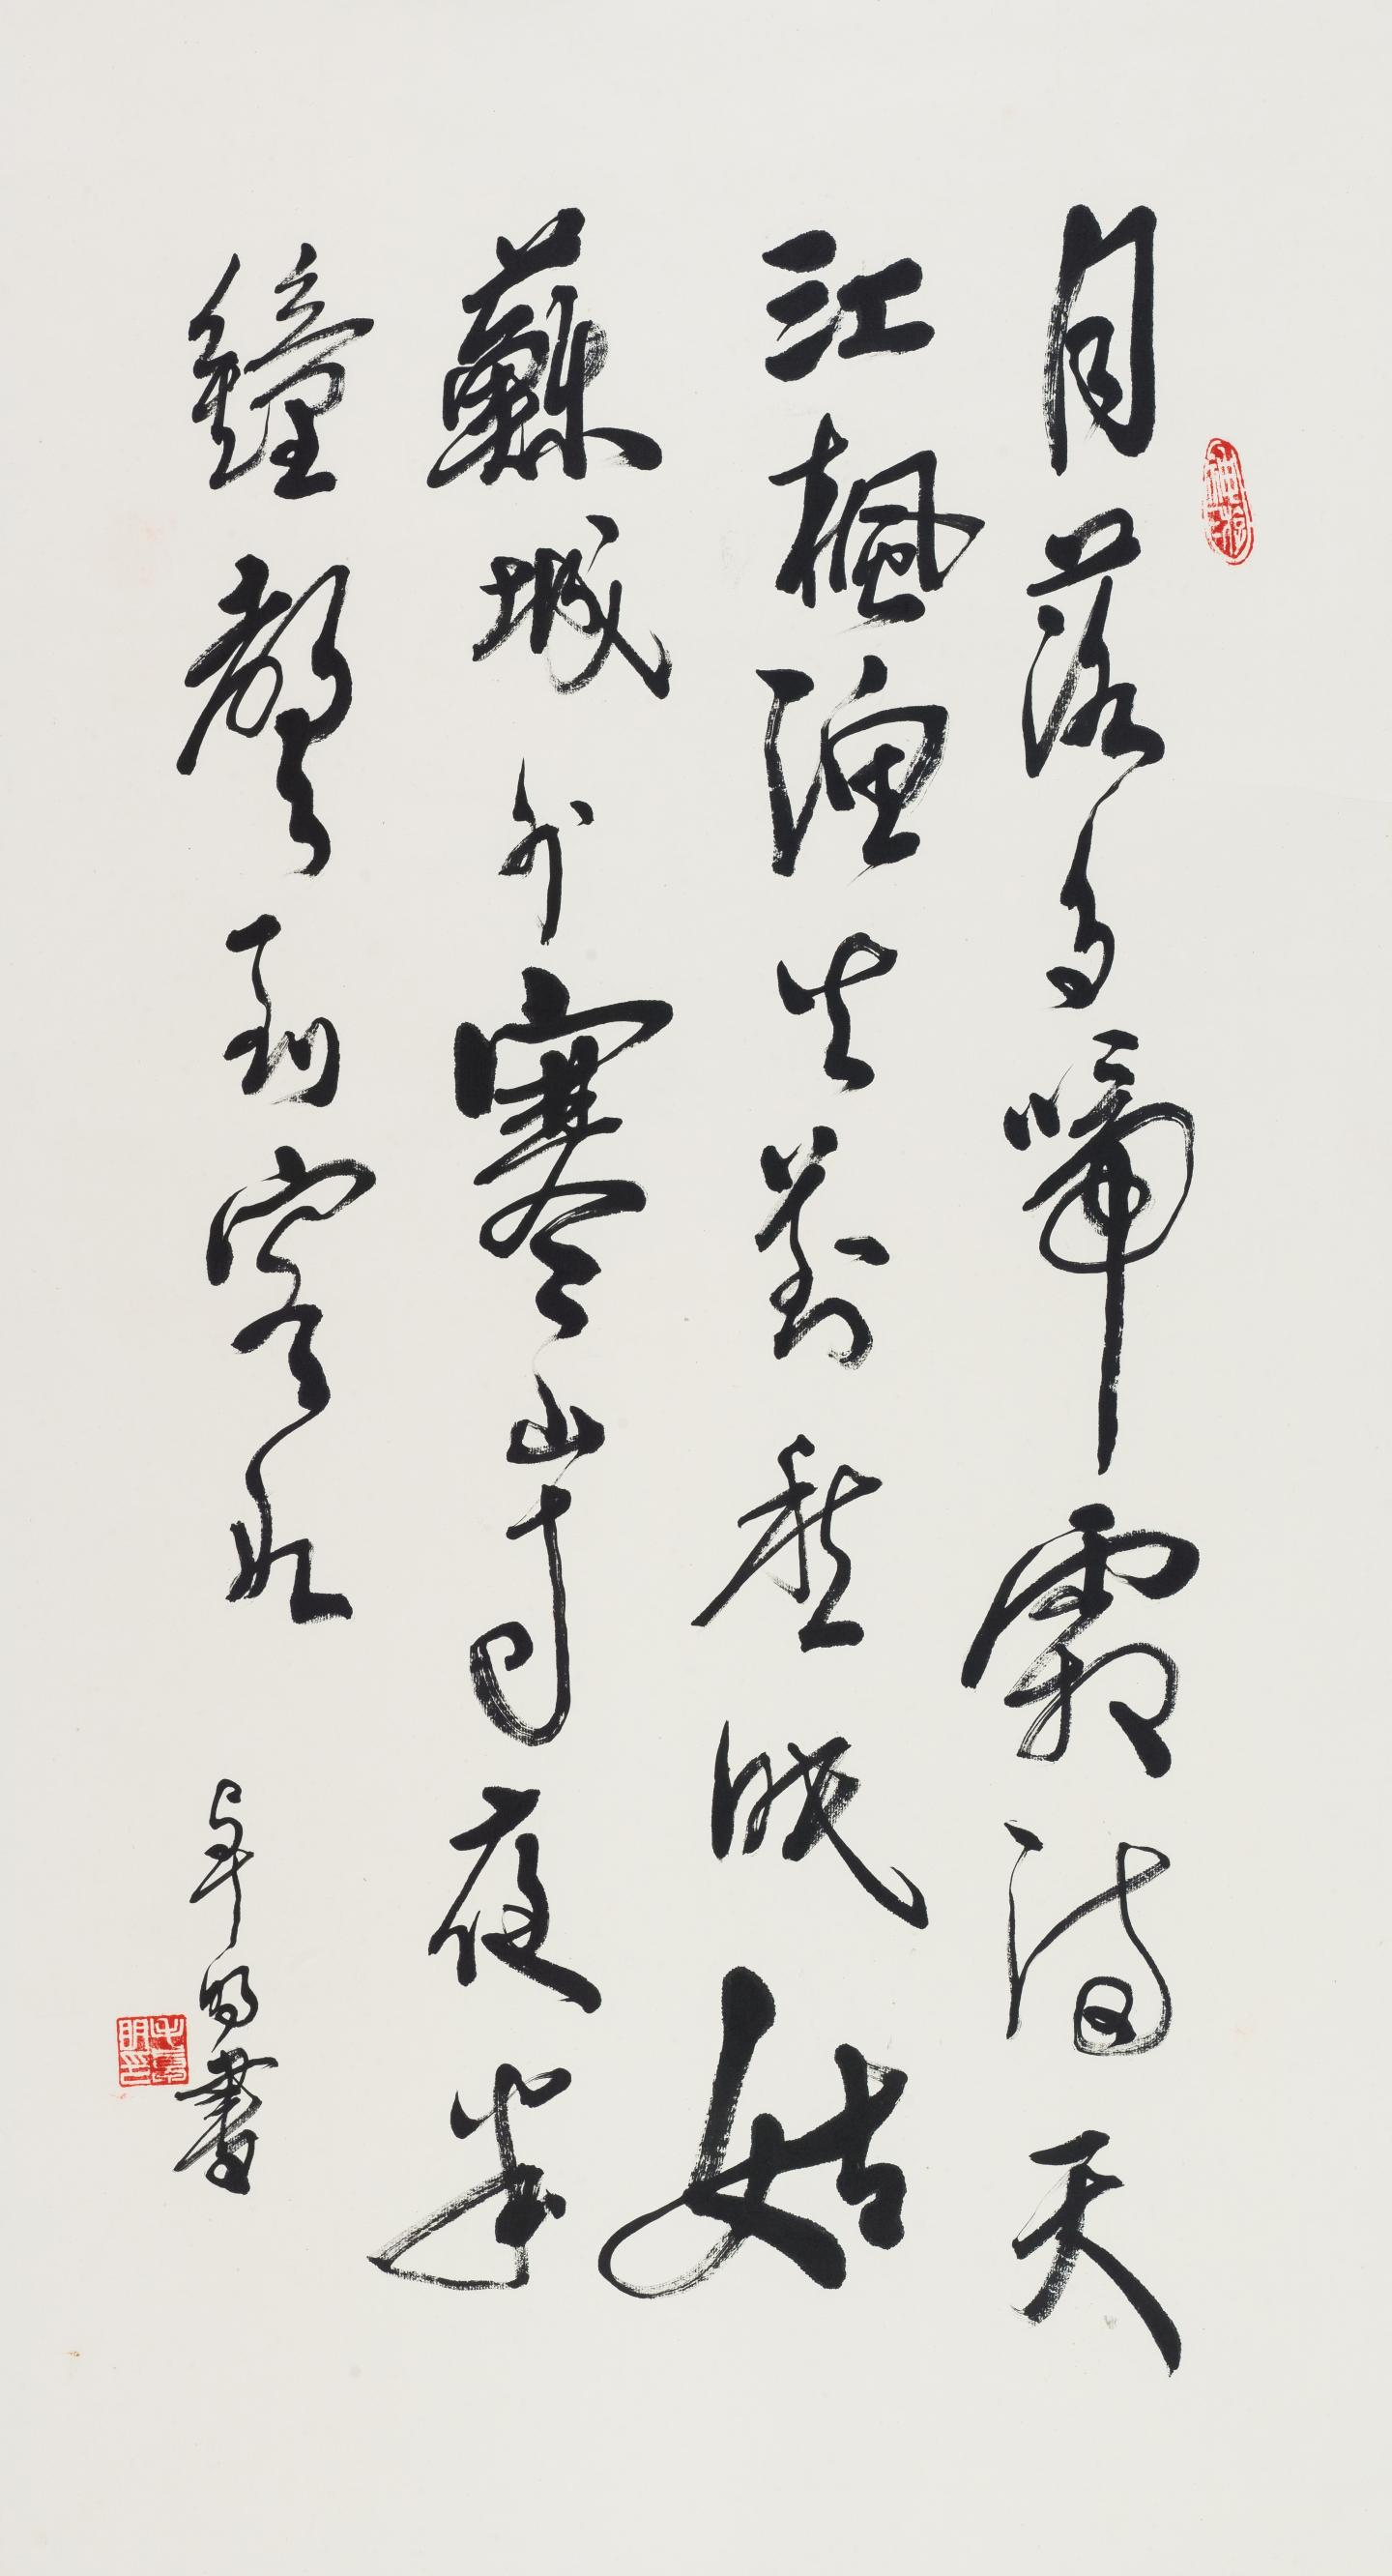 月落烏啼霜滿天
江楓漁火對愁眠姑
蘇城外寒山寺夜半
鐘聲到客船
明書